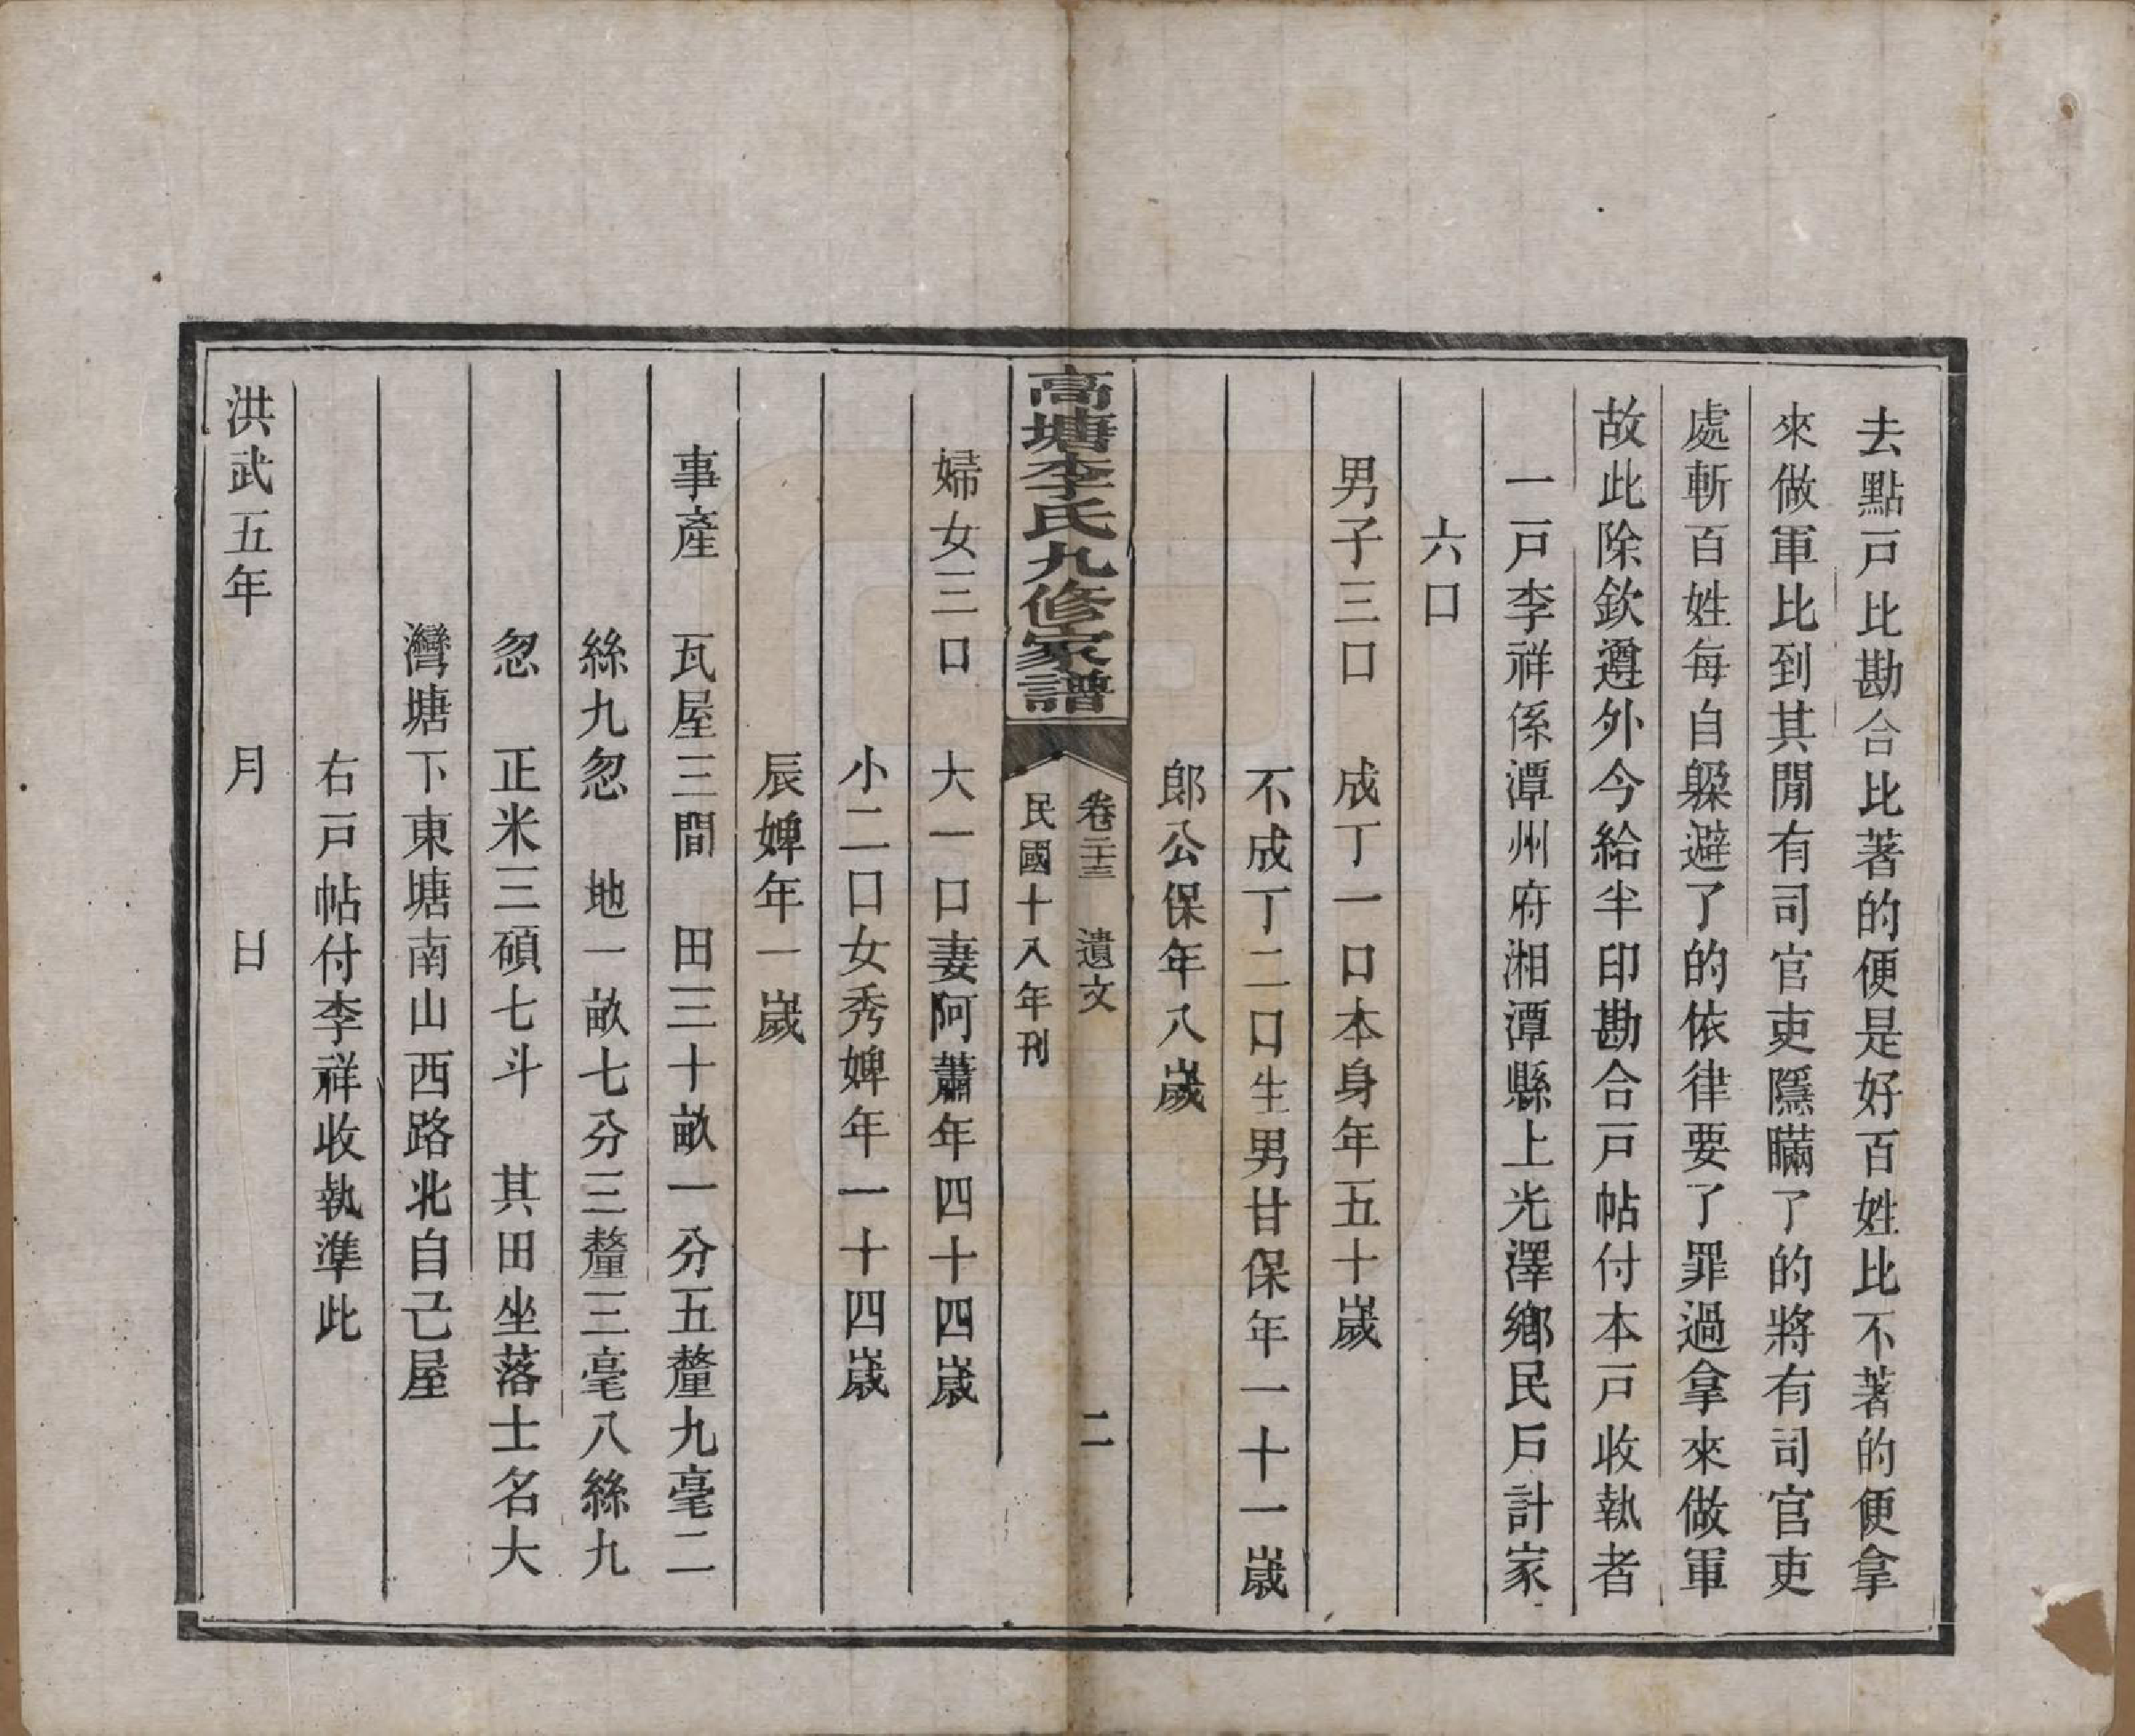 去點戸比勘合比著的便是好百姓比不著的便拿
來做軍比到其間有司官吏隱瞞了的將有司官吏
處斬百姓每自躱避了的依律要了罪過拿來做軍
故此除欽遵外今給半印勘合戸帖付本戸收執者
一戸李祥係潭州府湘潭縣上光澤鄉民戸計家
六口
男子三口 成丁一口本身年五十嵗
不成丁二口生男甘保年一十一嵗
郎公保年八嵗
高塘李氏九修家譜
卷二十三 遺文 二
民國十八年刊
婦女三口 大一口妻阿蕭年四十四嵗
小二口女秀婢年一十四嵗
辰婢年一嵗
事產 瓦屋三間 田三十畝一分五釐九毫二
絲九忽 地一畝七分三釐三毫八絲九
忽 正米三碩七斗 其田坐落士名大
灣塘下東塘南山西路北自己屋
右戸帖付李祥收執準此
洪武五年 月 日